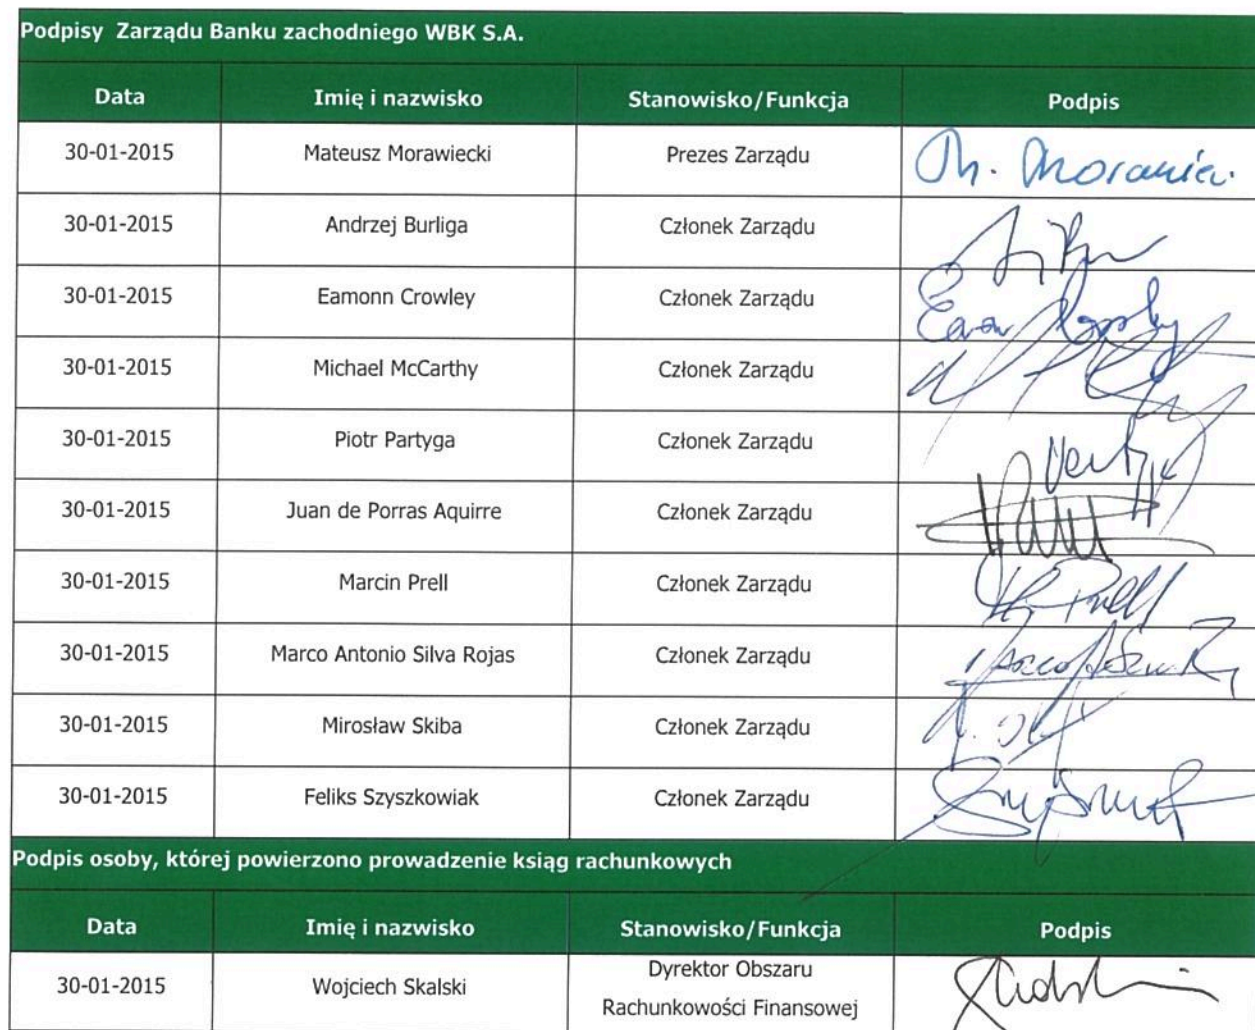 Podpisy Zarządu Banku zachodniego WBK S.A.
Data Imię i nazwisko Stanowisko/Funkcja Podpis
30-01-2015 Mateusz Morawiecki Prezes Zarządu
30-01-2015 Andrzej Burliga Członek Zarządu
30-01-2015 Eamonn Crowley Członek Zarządu
30-01-2015 Michael McCarthy Członek Zarządu
30-01-2015 Piotr Partyga Członek Zarządu
30-01-2015 Juan de Porras Aquirre Członek Zarządu
30-01-2015 Marcin Prell Członek Zarządu
30-01-2015 Marco Antonio Silva Rojas Członek Zarządu
30-01-2015 Mirosław Skiba Członek Zarządu
30-01-2015 Feliks Szyszkowiak Członek Zarządu
Podpis osoby, której powierzono prowadzenie ksiąg rachunkowych
Data Imię i nazwisko Stanowisko/Funkcja Podpis
30-01-2015 Wojciech Skalski Dyrektor Obszaru
Rachunkowości Finansowej